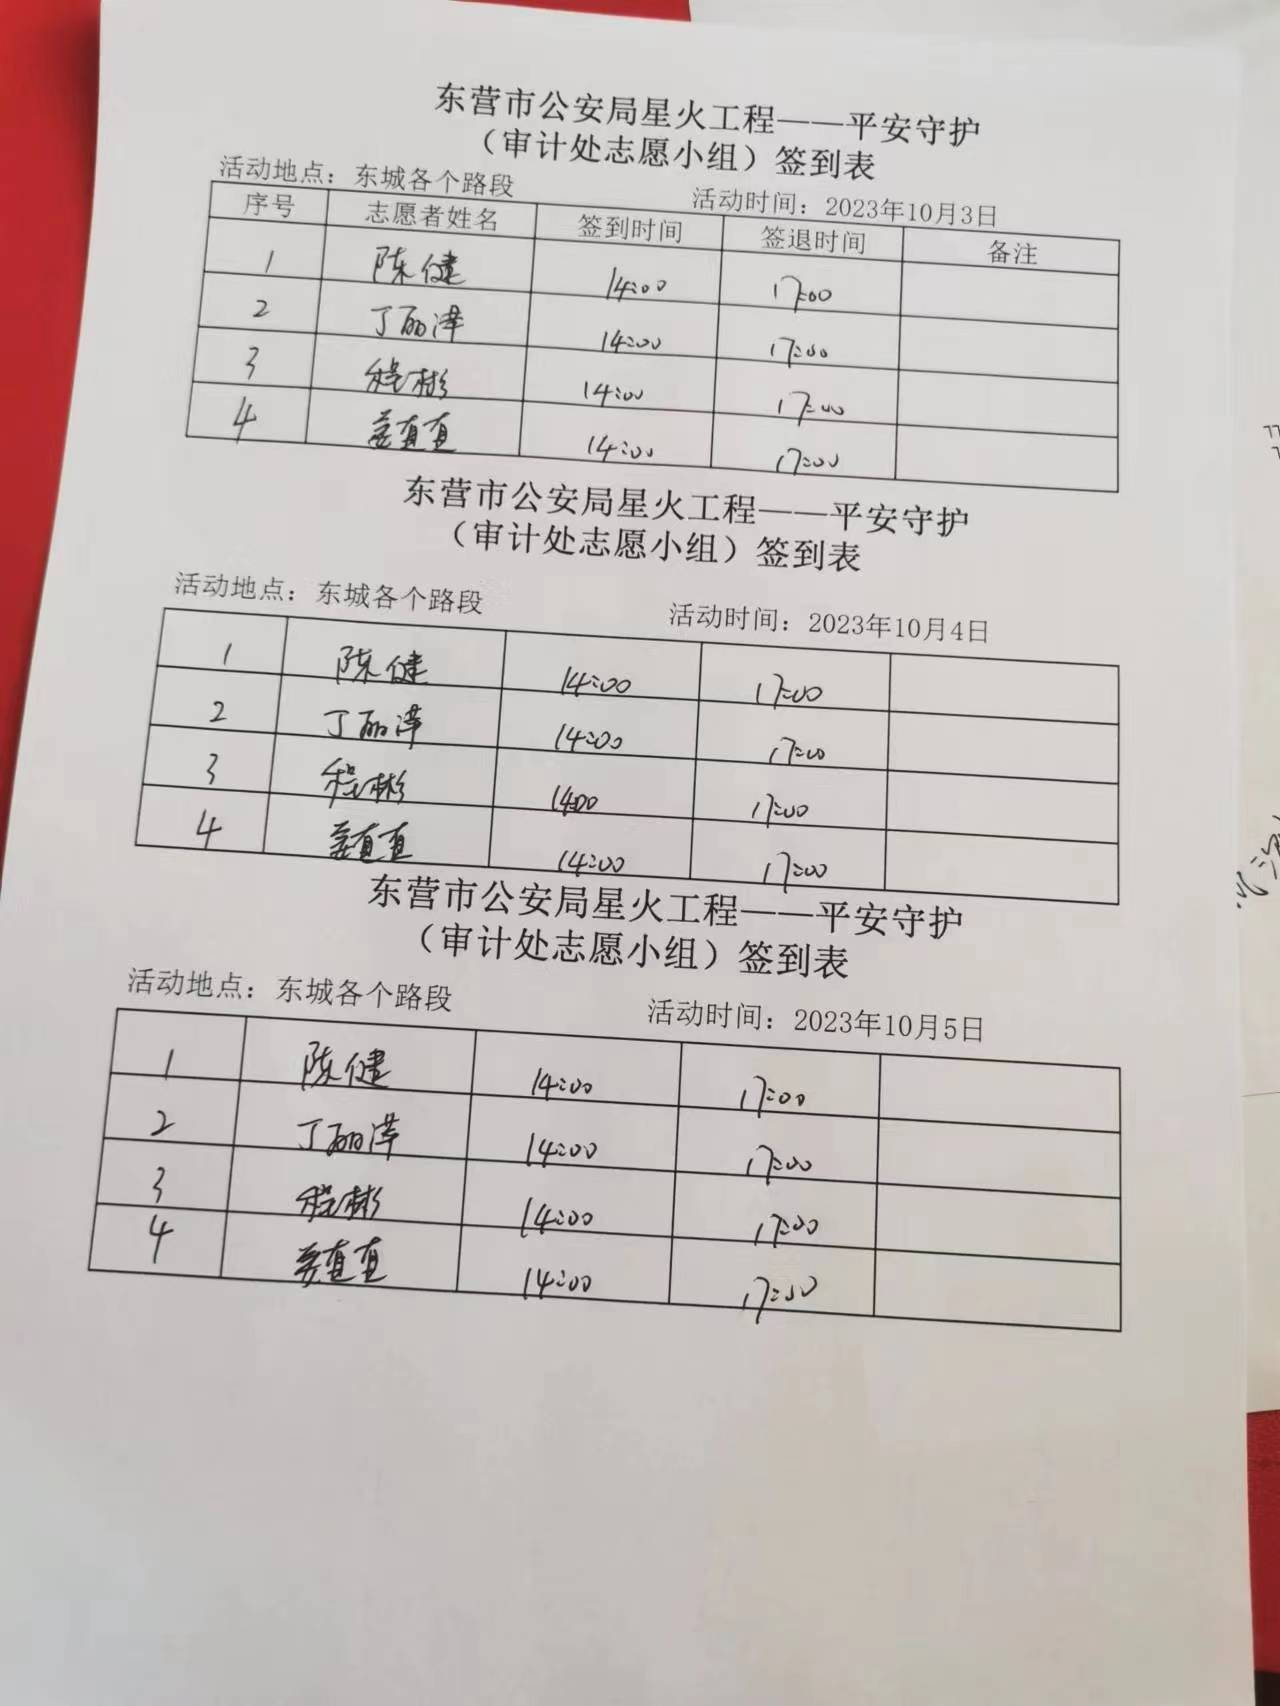 东营市公安局星火工程——平安守护
（审计处志愿小组）签到表
活动地点：东城各个路段 活动时间：2023年10月3日
序号 志愿者姓名 签到时间 签退时间 备注
1 陈健 14:00 17:00
2 丁丽萍 14:00 17:00
3 程彬 14:00 17:00
4 姜直直 14:00 17:00
东营市公安局星火工程——平安守护
（审计处志愿小组）签到表
活动地点：东城各个路段 活动时间：2023年10月4日
1 陈健 14:00 17:00
2 丁丽萍 14:00 17:00
3 程彬 14:00 17:00
4 姜直直 14:00 17:00
东营市公安局星火工程——平安守护
（审计处志愿小组）签到表
活动地点：东城各个路段 活动时间：2023年10月5日
1 陈健 14:00 17:00
2 丁丽萍 14:00 17:00
3 程彬 14:00 17:00
4 姜直直 14:00 17:00